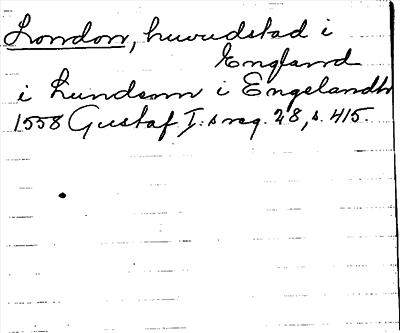 London, huvudstad i
England
i Lundonn i Engelandh
1558 Gustaf I:s reg. 28, s. 415.